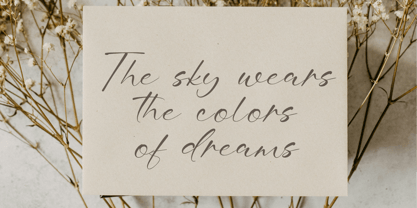 The sky wears
the colors
of dreams